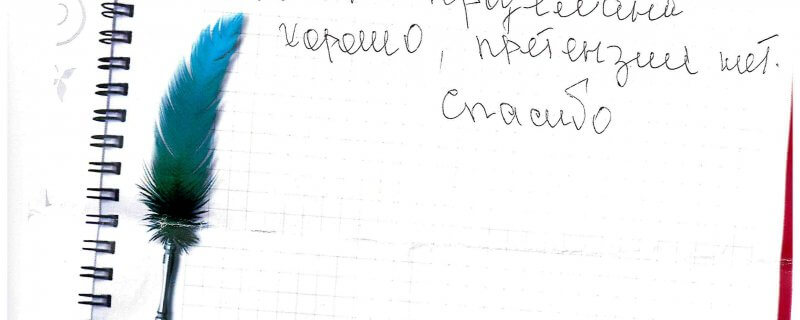 продумано
хорошо, претензий нет.
Спасибо